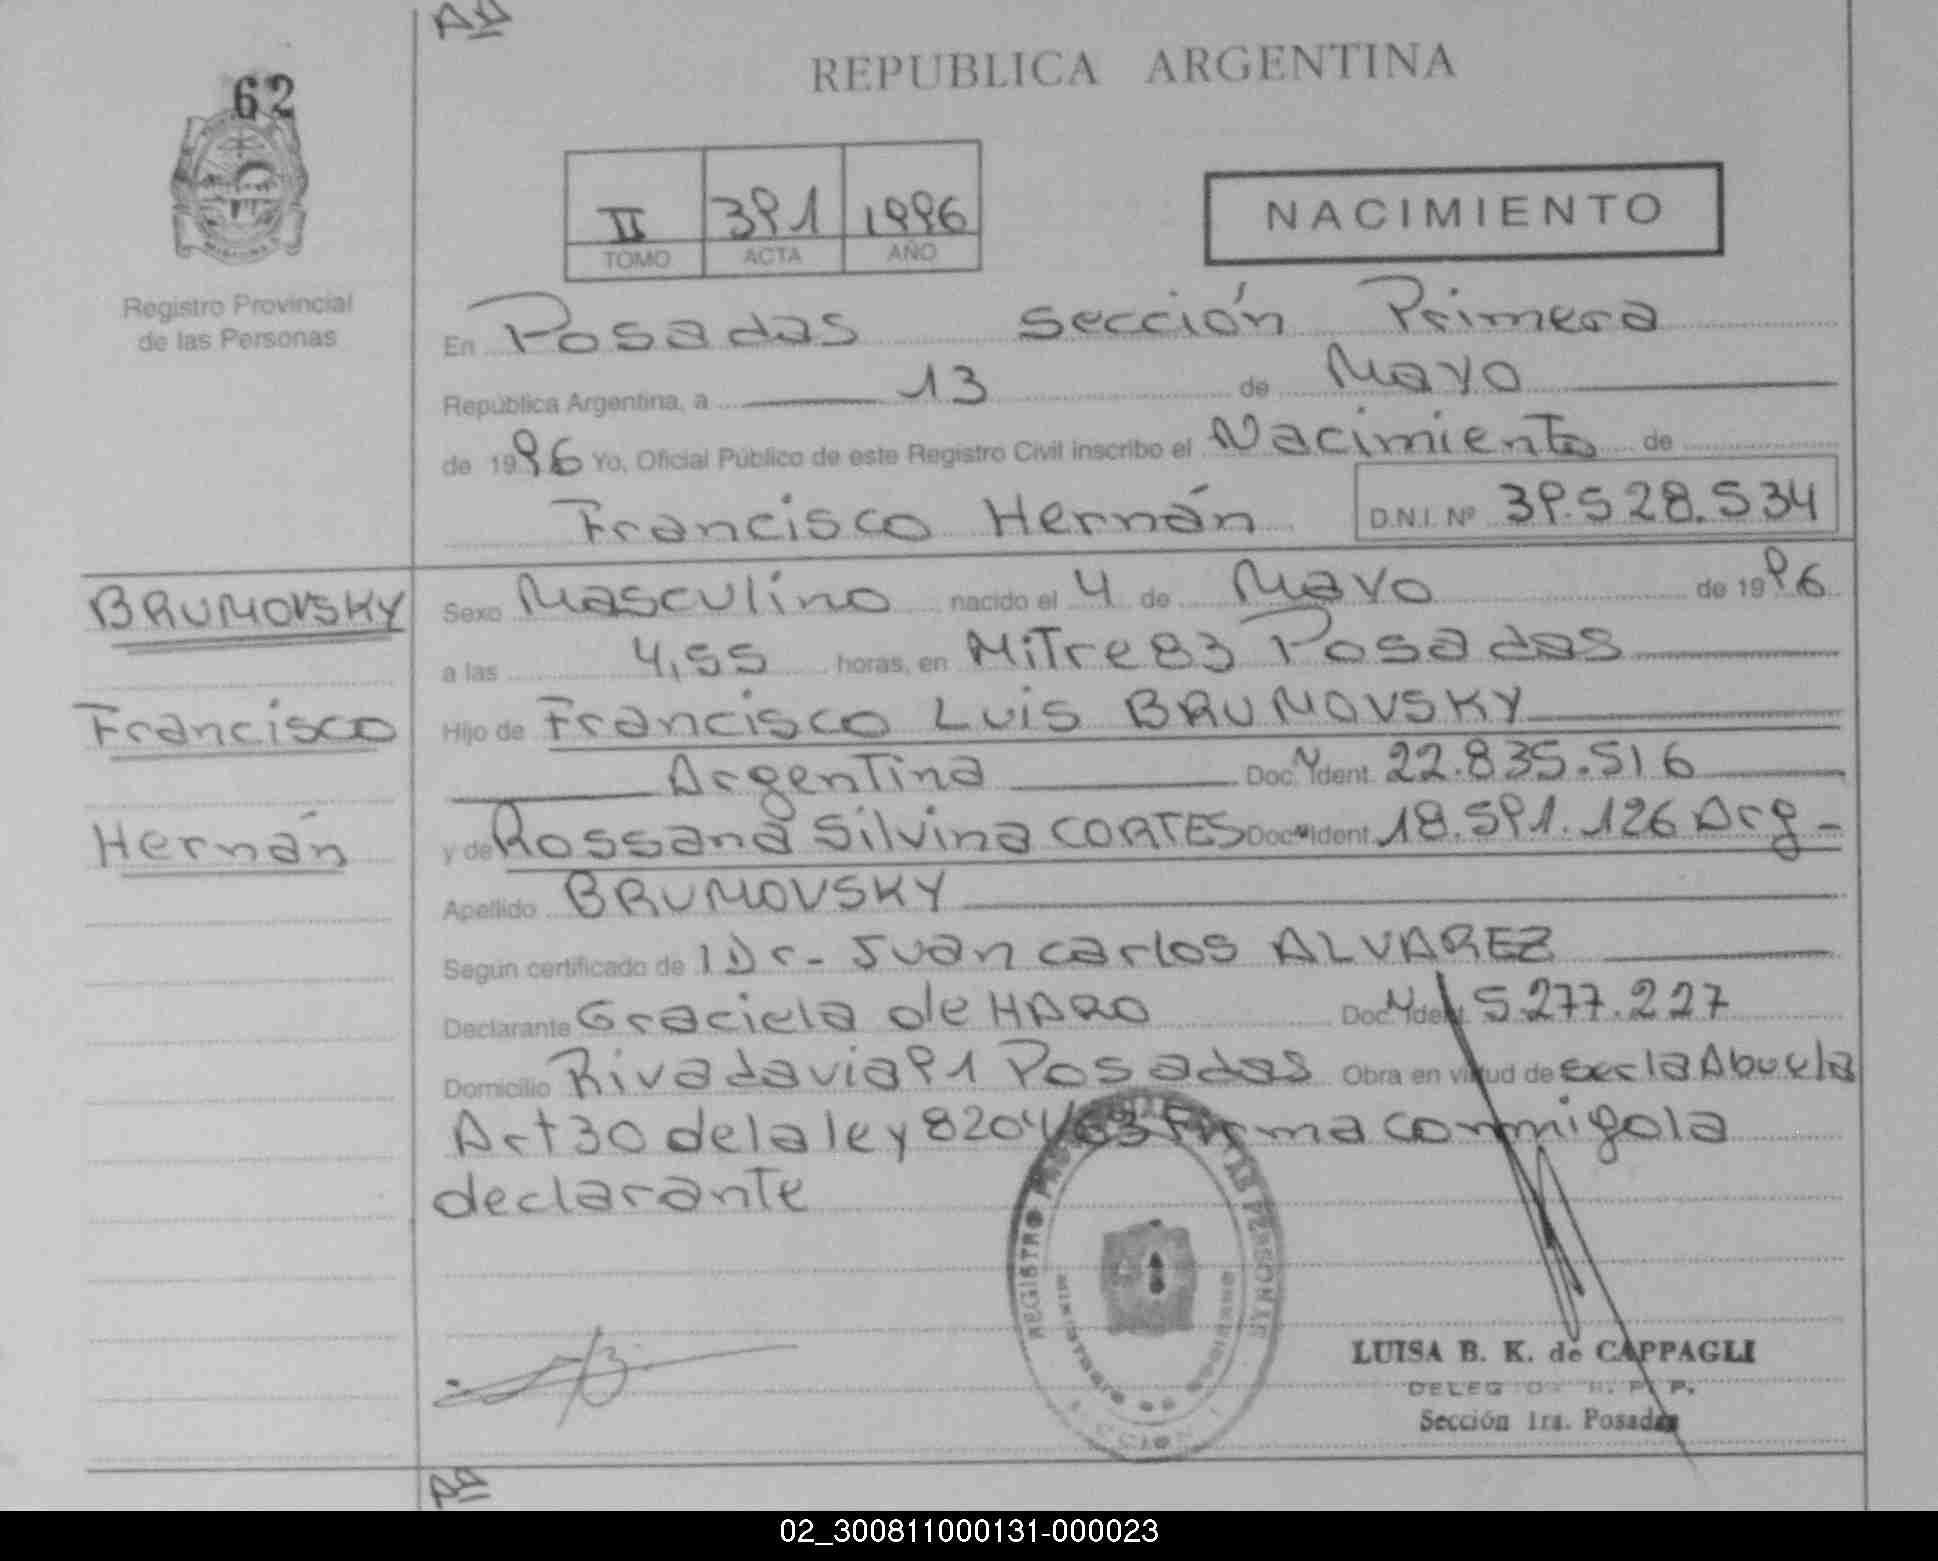 62
REPUBLICA ARGENTINA
II 391 1996
TOMO ACTA AÑO
NACIMIENTO
Registro Provincial
de las Personas
En Posadas sección Primera
República Argentina, a 13 de Mayo
de 1996 Yo, Oficial Público de este Registro Civil inscribo el Nacimiento de
Francisco Hernán D.N.I. Nº 39.528.534
BRUMOVSKY
Francisco
Hernán
Sexo Masculino nacido el 4 de Mayo de 1996
a las 4,55 horas, en Mitre 83 Posadas
Hijo de Francisco Luis BRUMOVSKY
Argentina Doc. Ident. 22.835.516
y de Rossana Silvina CORTES Doc. Ident. 18.591.126 Arg-
Apellido BRUMOVSKY
Según certificado de l Dr- Juan carlos ALVAREZ
Declarante Graciela de HARO Doc. Ident. 5.277.227
Domicilio Rivadavia 91 Posadas Obra en virtud de ser la Abuela
Art 30 de la ley 8204/63 Firma conmigo la
declarante
REGISTRO DE LAS PERSONAS
MINISTERIO DE GOBIERNO
LUISA B. K. de CAPPAGLI
R. P. P.
Sección 1ra. Posadas
02_300811000131-000023